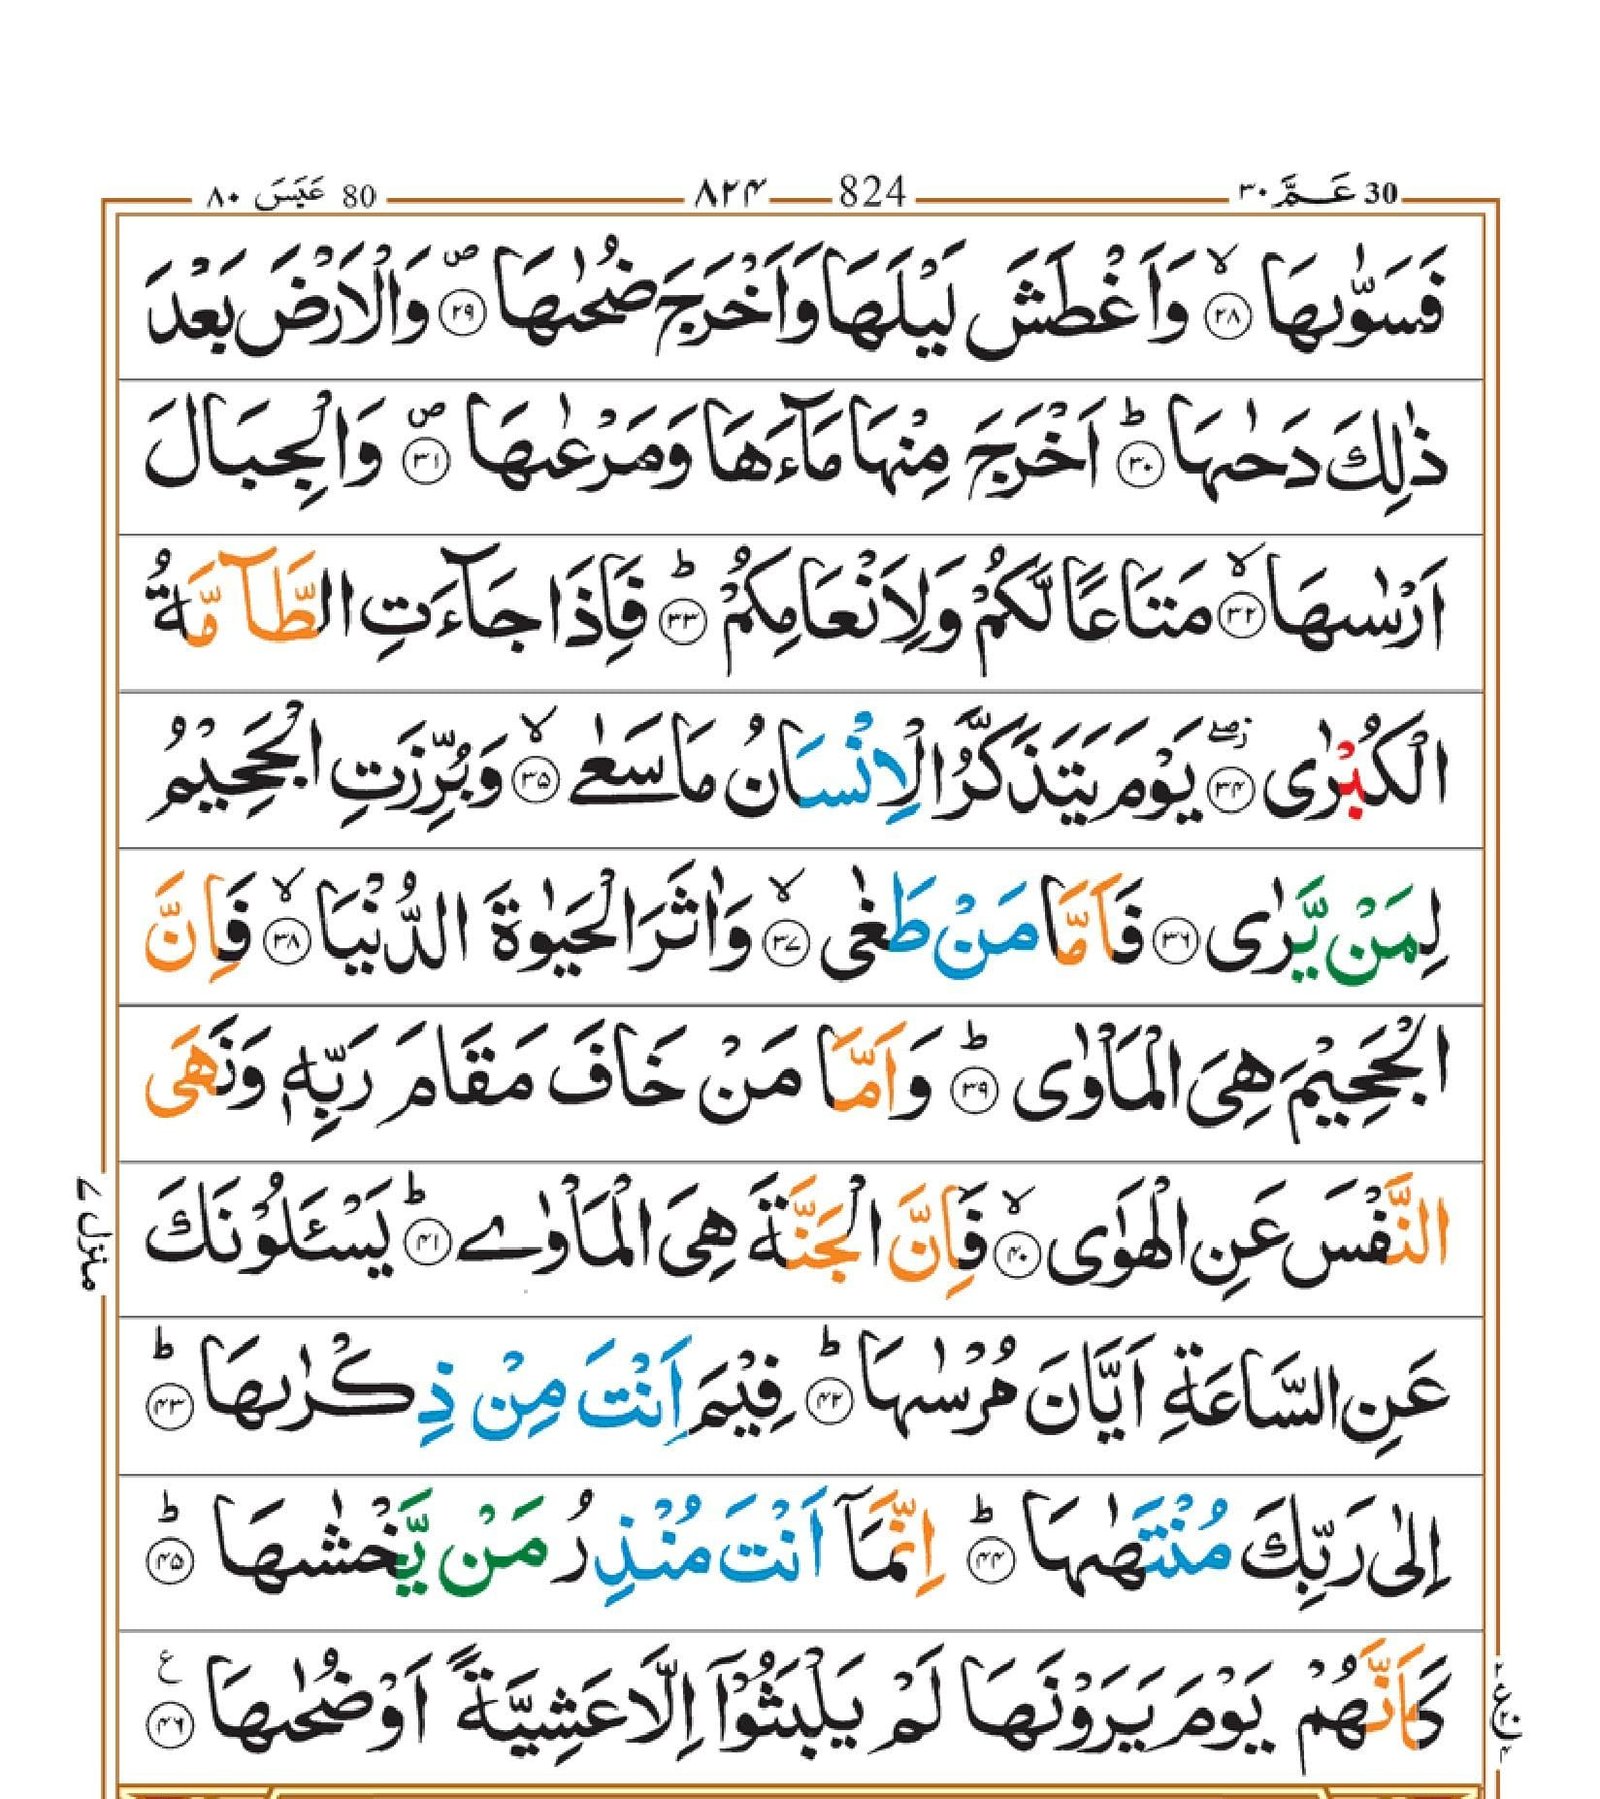 30 عَـمَّ ۳۰ 824 ۸۲۴ 80 عَبَسَ ۸۰
فَسَوّٰىهَا ۙ﴿۲۸﴾ وَاَغْطَشَ لَيْلَهَا وَاَخْرَجَ ضُحٰىهَا ۪﴿۲۹﴾ وَالْاَرْضَ بَعْدَ
ذٰلِكَ دَحٰىهَا ؕ﴿۳۰﴾ اَخْرَجَ مِنْهَا مَآءَهَا وَمَرْعٰىهَا ۪﴿۳۱﴾ وَالْجِبَالَ
اَرْسٰىهَا ۙ﴿۳۲﴾ مَتَاعًا لَّكُمْ وَلِاَنْعَامِكُمْ ؕ﴿۳۳﴾ فَاِذَا جَآءَتِ الطَّآمَّةُ
الْكُبْرٰى ۫ۖ﴿۳۴﴾ يَوْمَ يَتَذَكَّرُ الْاِنْسَانُ مَا سَعٰى ۙ﴿۳۵﴾ وَبُرِّزَتِ الْجَحِيْمُ
لِمَنْ يَّرٰى ﴿۳۶﴾ فَاَمَّا مَنْ طَغٰى ۙ﴿۳۷﴾ وَاٰثَرَ الْحَيٰوةَ الدُّنْيَا ۙ﴿۳۸﴾ فَاِنَّ
الْجَحِيْمَ هِىَ الْمَاْوٰى ؕ﴿۳۹﴾ وَاَمَّا مَنْ خَافَ مَقَامَ رَبِّهٖ وَنَهَى
النَّفْسَ عَنِ الْهَوٰى ۙ﴿۴۰﴾ فَاِنَّ الْجَنَّةَ هِىَ الْمَاْوٰے ؕ﴿۴۱﴾ يَسْـَٔلُوْنَكَ
منزل ۷
عَنِ السَّاعَةِ اَيَّانَ مُرْسٰىهَا ؕ﴿۴۲﴾ فِيْمَ اَنْتَ مِنْ ذِكْرٰىهَا ؕ﴿۴۳﴾
اِلٰى رَبِّكَ مُنْتَهٰىهَا ؕ﴿۴۴﴾ اِنَّمَآ اَنْتَ مُنْذِرُ مَنْ يَّخْشٰىهَا ؕ﴿۴۵﴾
كَاَنَّهُمْ يَوْمَ يَرَوْنَهَا لَمْ يَلْبَثُوْٓا اِلَّا عَشِيَّةً اَوْ ضُحٰىهَا ع﴿۴۶﴾